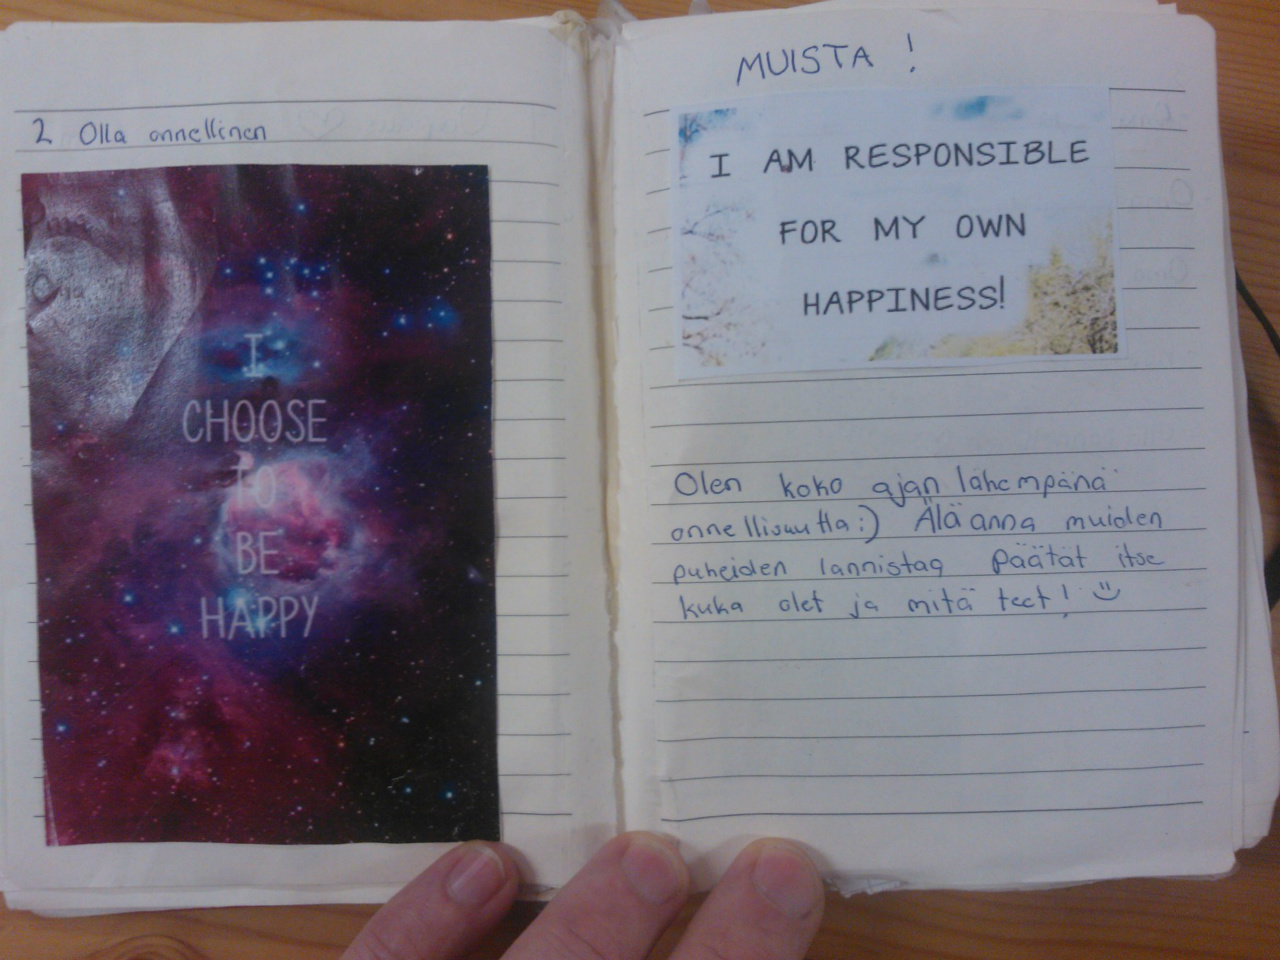 2 Olla onnellinen
I
CHOOSE
TO
BE
HAPPY
MUISTA !
I AM RESPONSIBLE
FOR MY OWN
HAPPINESS!
Olen koko ajan lähempänä
onnellisuutta:) Älä anna muiden
puheiden lannistaa päätät itse
kuka olet ja mitä teet!